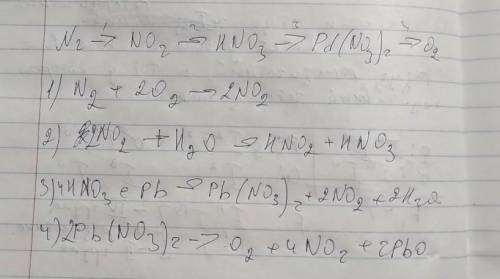 N₂ →¹ NO₂ →² HNO₃ →³ Pb(NO₃)₂ →⁴ O₂
1) N₂ + 2O₂ → 2NO₂
2) 2NO₂ + H₂O → HNO₂ + HNO₃
3) 4HNO₃ + Pb → Pb(NO₃)₂ + 2NO₂ + 2H₂O
4) 2Pb(NO₃)₂ → O₂ + 4NO₂ + 2PbO